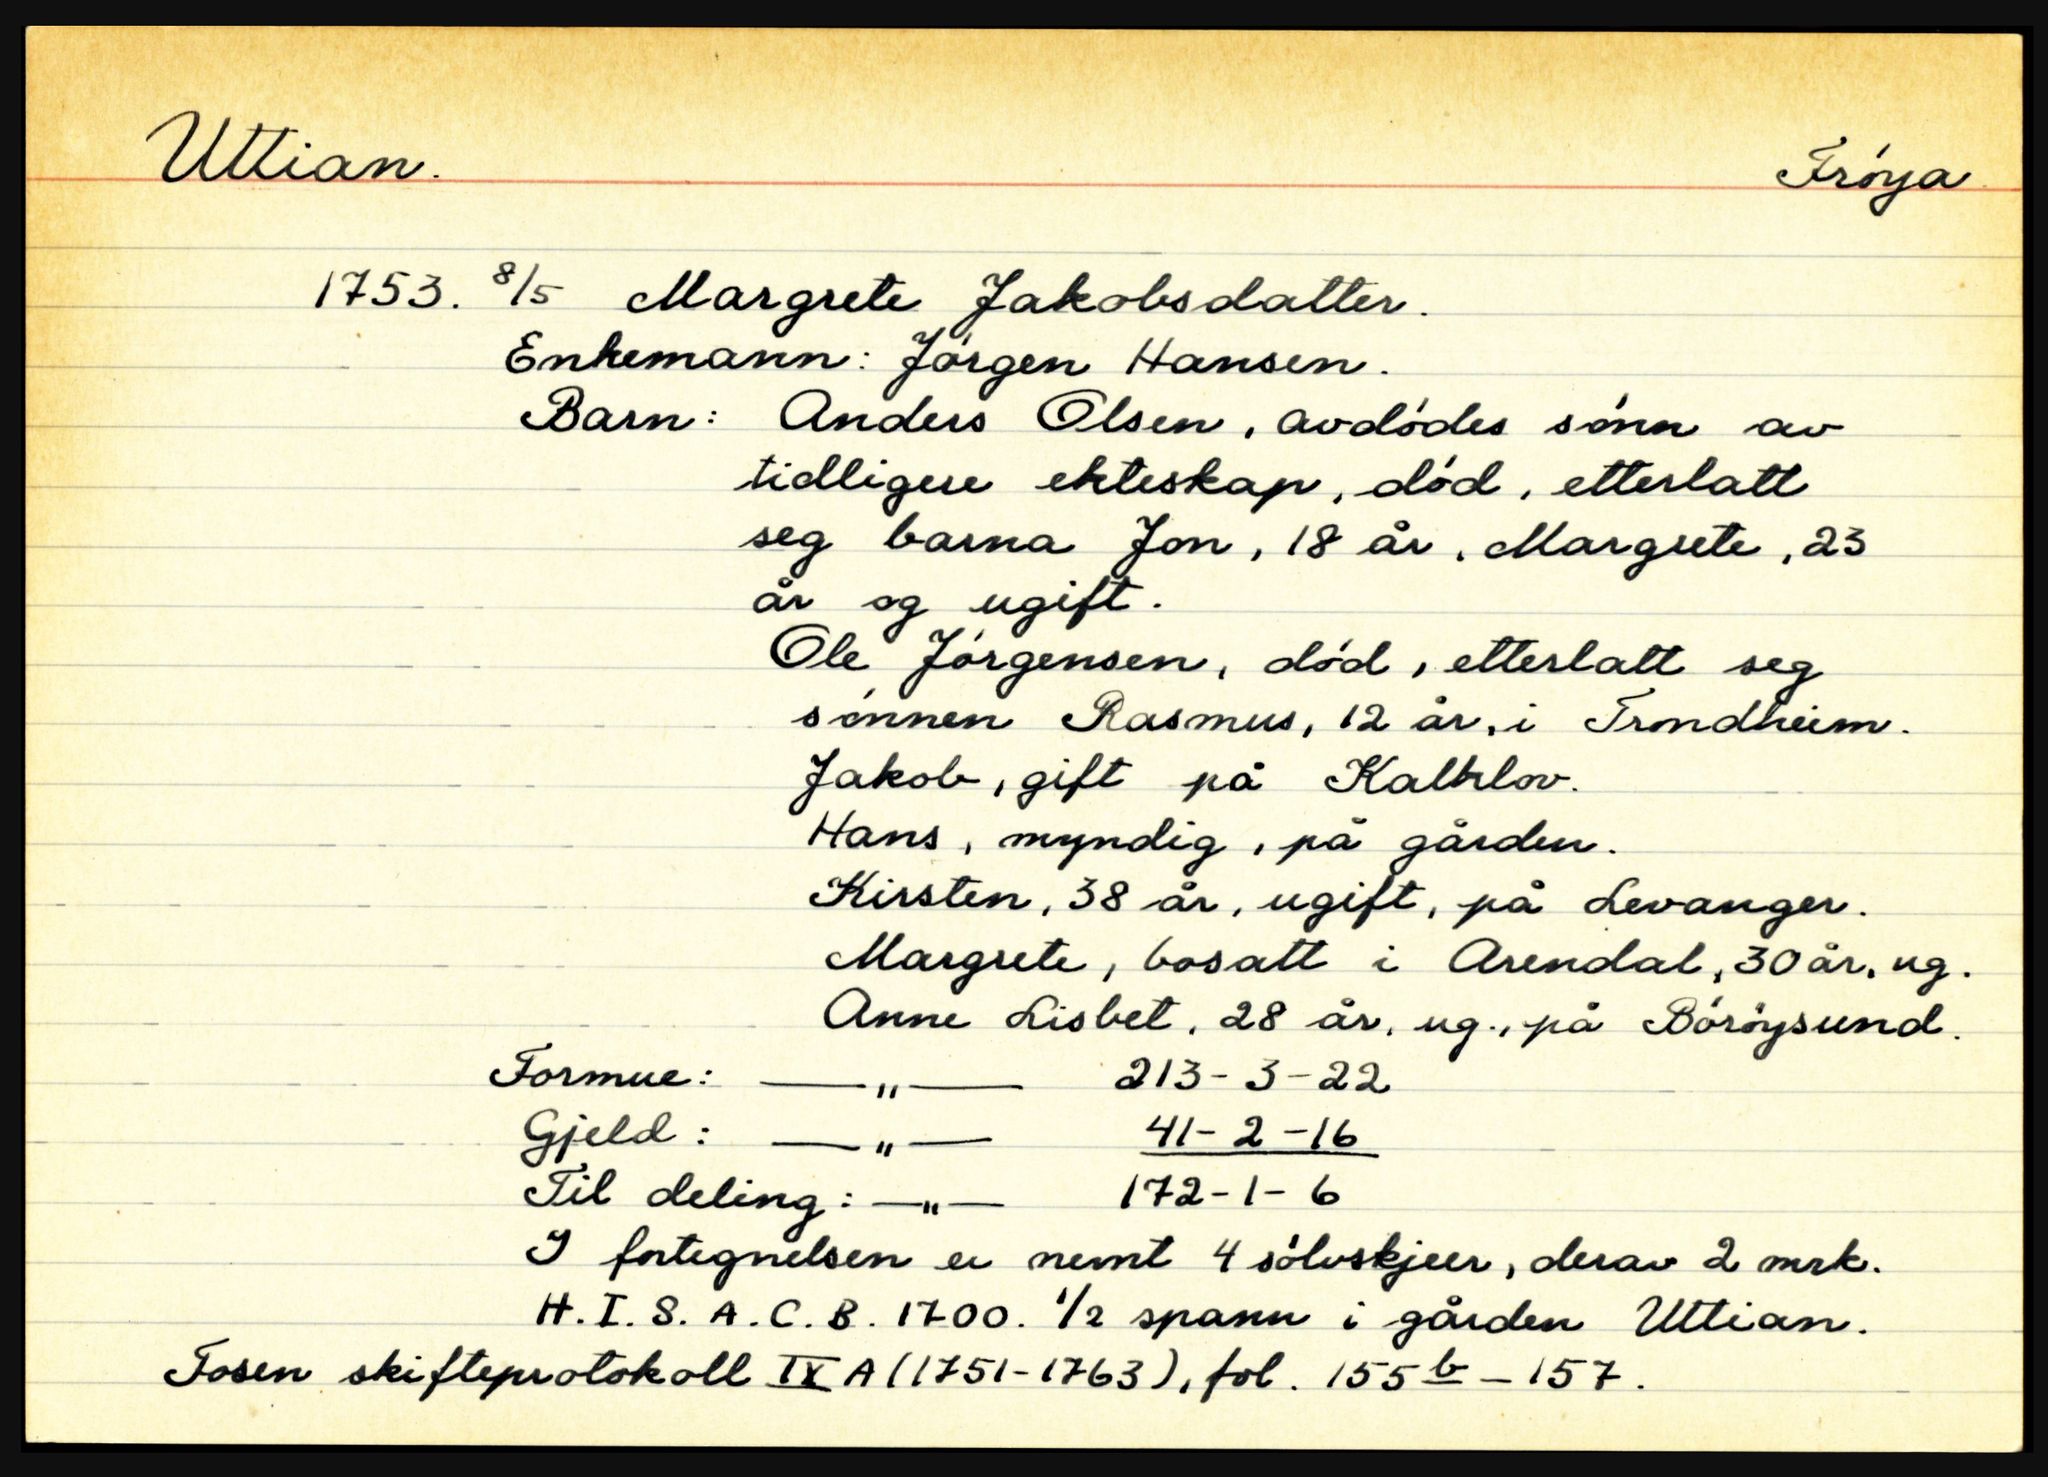 Uttian. Frøya
1753. 8/5 Margrete Jakobsdatter.
Enkemann: Jørgen Hansen.
Barn: Anders Olsen, avdødes sønn av
tidligere ekteskap, død, etterlatt
seg barna Jon, 18 år, Margrete, 23
år og ugift.
Ole Jørgensen, død, etterlatt seg
sønnen Rasmus, 12 år, i Trondheim.
Jakob, gift på Kalklov.
Hans, myndig, på gården.
Kirsten, 38 år, ugift, på Levanger.
Margrete, bosatt i Arendal, 30 år, ug.
Anne Lisbet, 28 år, ug., på Börøysund.
Formue: —„— 213-3-22
Gjeld: —„— 41-2-16
Til deling: —„— 172-1-6
I fortegnelsen er nevnt 4 sølvskjeer, derav 2 mrk.
H.I.S.A.C.B. 1700. 1/2 spann i gården Uttian.
Fosen skifteprotokoll IX A (1751-1763), fol. 155 b - 157.